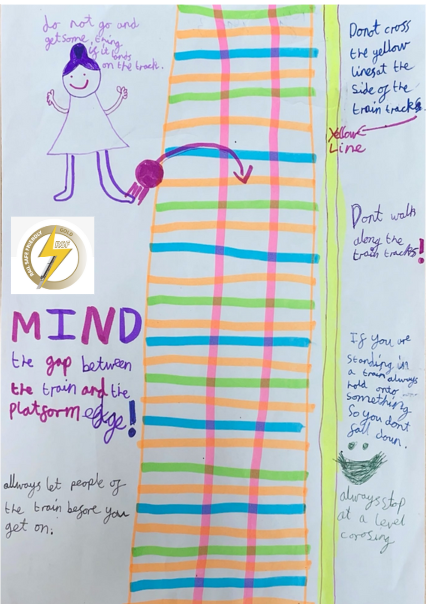 do not go and
get some thing
is it lands
on the track.
Donot cross
the yellow
lines at the
side of the
train tracks.
Yellow
Line
Dont walk
along the
train tracks!
RAIL SAFE FRIENDLY GOLD
RSF
MIND
the gap between
the train and the
platform egge!
If you are
standing in
a train always
hold onto
something
So you dont
fall down.
allways let people of
the train before you
get on.
always stop
at a level
corosing